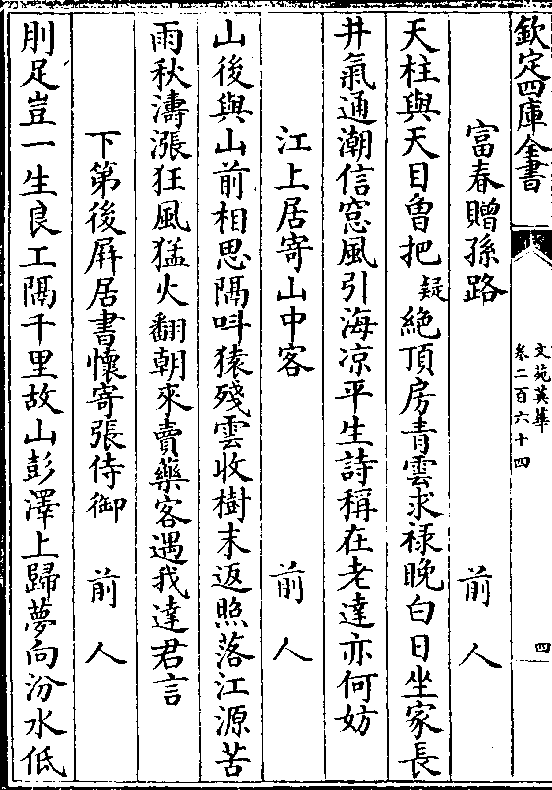 欽定四庫全書
文苑英華
卷二百六十四
四
富春贈孫路 前人
天柱與天目曾把疑絶頂房青雲求禄晚白日坐家長
井氣通潮信窓風引海凉平生詩稱在老達亦何妨
江上居寄山中客 前人
山後與山前相思隔呌猿殘雲收樹末返照落江源苦
雨秋濤漲狂風猛火翻朝來賣藥客遇我達君言
下第後屏居書懷寄張侍御 前人
刖足豈一生良工隔千里故山彭澤上歸夢向汾水低